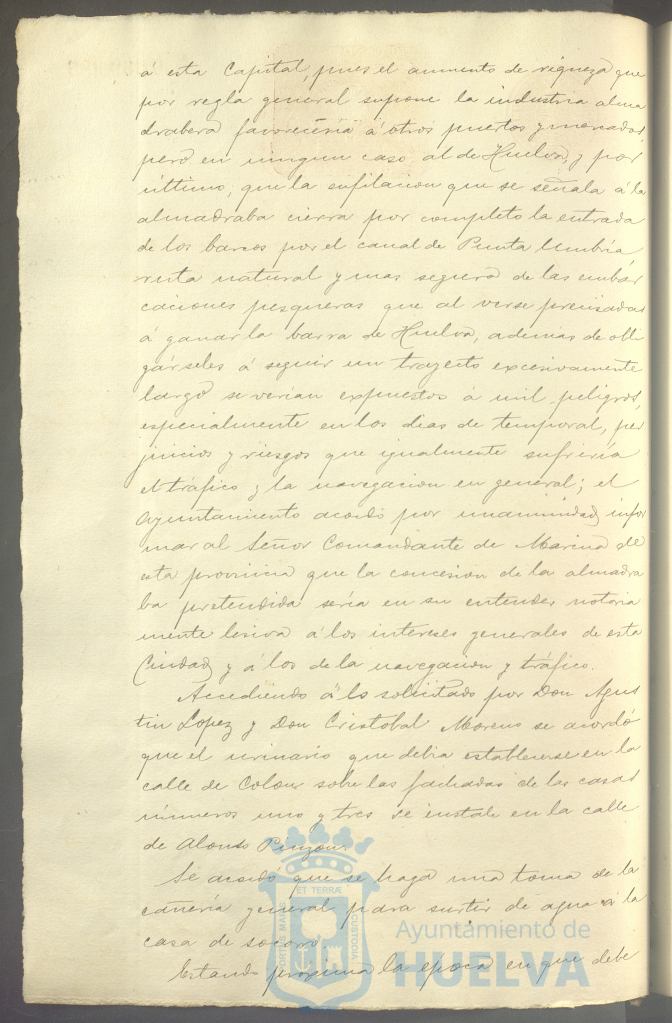 á esta Capital, pues el aumento de riqueza que
por regla general supone la industria alma
drabera favorecería á otros puertos y mercados,
pero en ningun caso al de Huelva, y por
último, que la enfilacion que se señala á la
almadraba cierra por completo la entrada
de los barcos por el canal de Punta Umbría
ruta natural y mas segura de las embar
caciones pesqueras que al verse precisadas
á ganar la barra de Huelva, ademas de obli
gárseles á seguir un trayecto excesivamente
largo se verian expuestos á mil peligros,
especialmente en los dias de temporal, per
juicios y riesgos que igualmente sufriría
el tráfico y la navegacion en general; el
Ayuntamiento acordó por unanimidad infor
mar al Señor Comandante de Marina de
esta provincia que la concesion de la almadra
ba pretendida sería en su entender notoria
mente lesiva á los intereses generales de esta
Ciudad y á los de la navegacion y tráfico.
Accediendo á lo solicitado por Don Agus
tin Lopez y Don Cristobal Moreno se acordó
que el urinario que debia establecerse en la
calle de Colon sobre las fachadas de las casas
números uno y tres se instale en la calle
de Alonso Pinzon.
Se acordó que se haga una toma de la
cañería general para surtir de agua á la
casa de socorro.
Estando próxima la época en que debe
PORTUS MARIS ET TERRÆ CUSTODIA
Ayuntamiento de
HUELVA